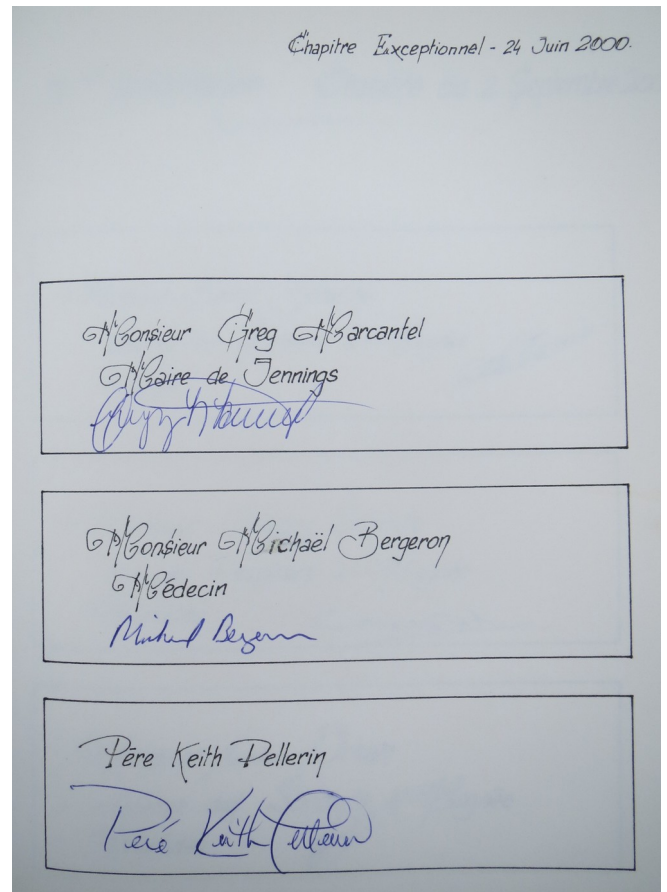 Chapitre Exceptionnel - 24 Juin 2000.
Monsieur Greg Marcantel
Maire de Jennings
Monsieur Michaël Bergeron
Médecin
Michael Bergeron
Père Keith Pellerin
Père Keith Pellerin